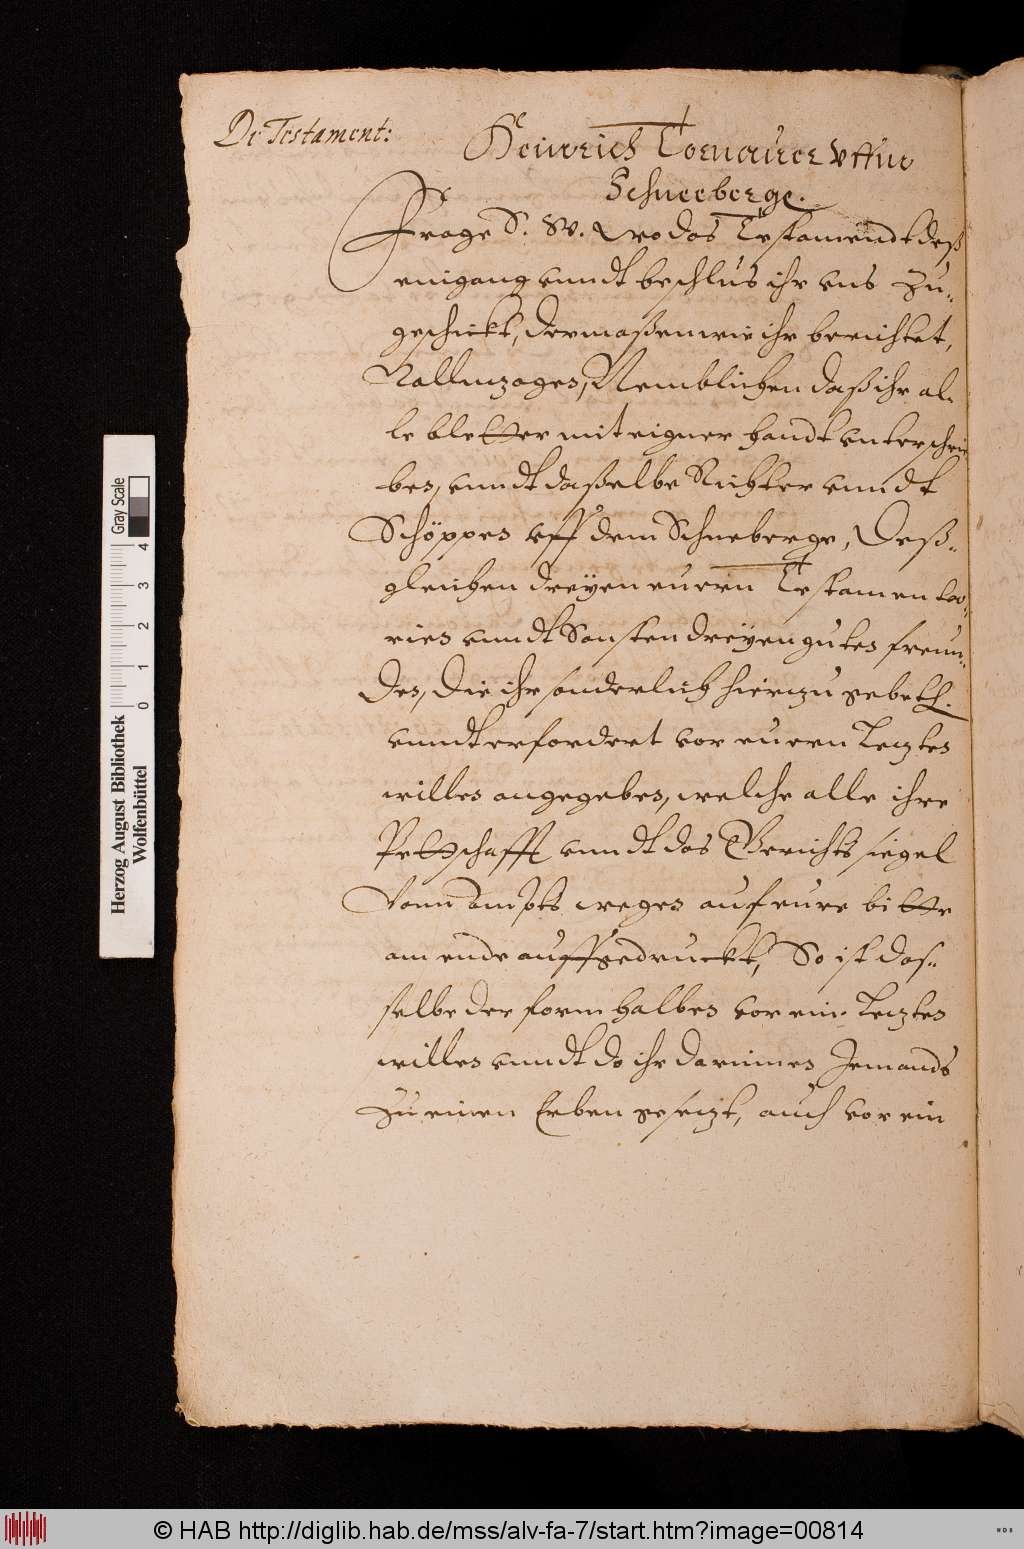 De Testament:
Heinrich Tornauer vffm
Schneeberge.
Frage S. W. Wo das Testamendt deß
einigang vnndt beschlus ihr vns zu-
geschickt, dermaßen wie ihr berichtet,
Vollnzogen, Nemblichen daß ihr al-
le bletter mit eigner handt vnterschrie
ben, vnndt daßelbe Richter vnndt
Schöppen vff dem Schneberge, Deß-
gleichen dreyen euern Testamento-
rien vnndt Sonsten dreyen guten freun-
den, Die ihr sonderlich hierzu gebeth.
vnndt erfordert vor euern letzten
willen angegeben, welche alle ihre
Petschafft vnndt das Gerichts siegel
Vonn ambts wegen auf eure bitte
am ende auffgedruckt, So ist das-
selbe der form halben vor ein letzten
willen vnndt do ihr darinnen Jemands
zu einen Erben gesetzt, auch vor ein
Herzog August Bibliothek
Wolfenbüttel
Gray Scale
0 1 2 3 4
© HAB http://diglib.hab.de/mss/alv-fa-7/start.htm?image=00814